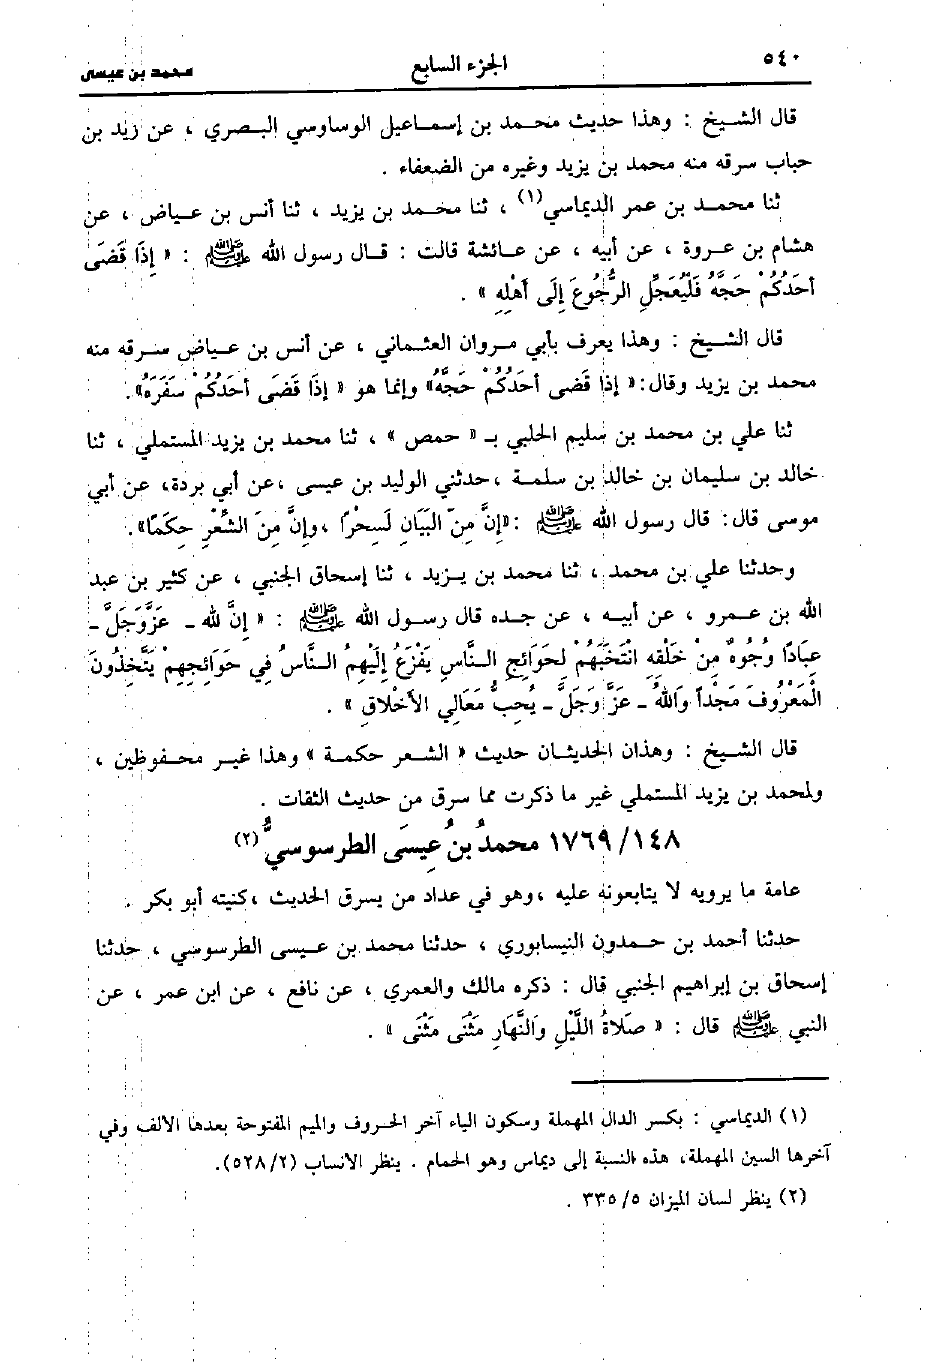 ٥٤٠ الجزء السابع محمد بن عيسى
قال الشيخ : وهذا حديث محمد بن إسماعيل الوساوسي البصري ، عن زيد بن
حباب سرقه منه محمد بن يزيد وغيره من الضعفاء .
ثنا محمد بن عمر الديماسي(١) ، ثنا محمد بن يزيد ، ثنا أنس بن عياض ، عن
هشام بن عروة ، عن أبيه ، عن عائشة قالت : قال رسول الله ﷺ : « إِذَا قَضَى
أَحَدُكُمْ حَجَّهُ فَلْيُعَجِّلِ الرُّجُوعَ إِلَى أَهْلِهِ » .
قال الشيخ : وهذا يعرف بأبي مروان العثماني ، عن أنس بن عياض سرقه منه
محمد بن يزيد وقال: « إِذَا قَضى أَحَدُكُمْ حَجَّهُ» وإنما هو « إِذَا قَضَى أَحَدُكُمْ سَفَرَهُ».
ثنا علي بن محمد بن سليم الحلبي بـ « حمص » ، ثنا محمد بن يزيد المستملي ، ثنا
خالد بن سليمان بن خالد بن سلمة ، حدثني الوليد بن عيسى ، عن أبي بردة، عن أبي
موسى قال: قال رسول الله ﷺ :«إِنَّ مِنَ البَيَانِ لَسِحْرًا ، وإِنَّ مِنَ الشِّعْرِ حِكَمًا».
وحدثنا علي بن محمد ، ثنا محمد بن يزيد ، ثنا إسحاق الجنبي ، عن كثير بن عبد
الله بن عمرو ، عن أبيه ، عن جده قال رسول الله ﷺ : « إِنَّ للهِ ـ عَزَّوَجَلَّ ـ
عِبَادًا وُجُوهٌ مِنْ خَلْقِهِ انْتَخَبَهُمْ لِحَوَائِجِ النَّاسِ يَفْزَعُ إِلَيْهِمُ النَّاسُ فِي حَوَائِجِهِمْ يَتَّخِذُونَ
الْمَعْرُوفَ مَجْداً وَاللهُ ـ عَزَّ وَجَلَّ ـ يُحِبُّ مَعَالِي الأَخْلاقِ » .
قال الشيخ : وهذان الحديثان حديث « الشعر حكمة » وهذا غير محفوظين ،
ولمحمد بن يزيد المستملي غير ما ذكرت مما سرق من حديث الثقات .
١٧٦٩/١٤٨ محمدُ بنُ عِيسَى الطرسوسيُّ(٢)
عامة ما يرويه لا يتابعونه عليه ، وهو في عداد من يسرق الحديث ، كنيته أبو بكر .
حدثنا أحمد بن حمدون النيسابوري ، حدثنا محمد بن عيسى الطرسوسي ، حدثنا
إسحاق بن إبراهيم الجنبي قال : ذكره مالك والعمري ، عن نافع ، عن ابن عمر ، عن
النبي ﷺ قال : « صَلاةُ اللَّيْلِ وَالنَّهَارِ مَثْنَى مَثْنَى » .
(١) الديماسي : بكسر الدال المهملة وسكون الياء آخر الحروف والميم المفتوحة بعدها الألف وفي
آخرها السين المهملة، هذه النسبة إلى ديماس وهو الحمام . ينظر الانساب (٥٢٨/٢).
(٢) ينظر لسان الميزان ٣٣٥/٥ .